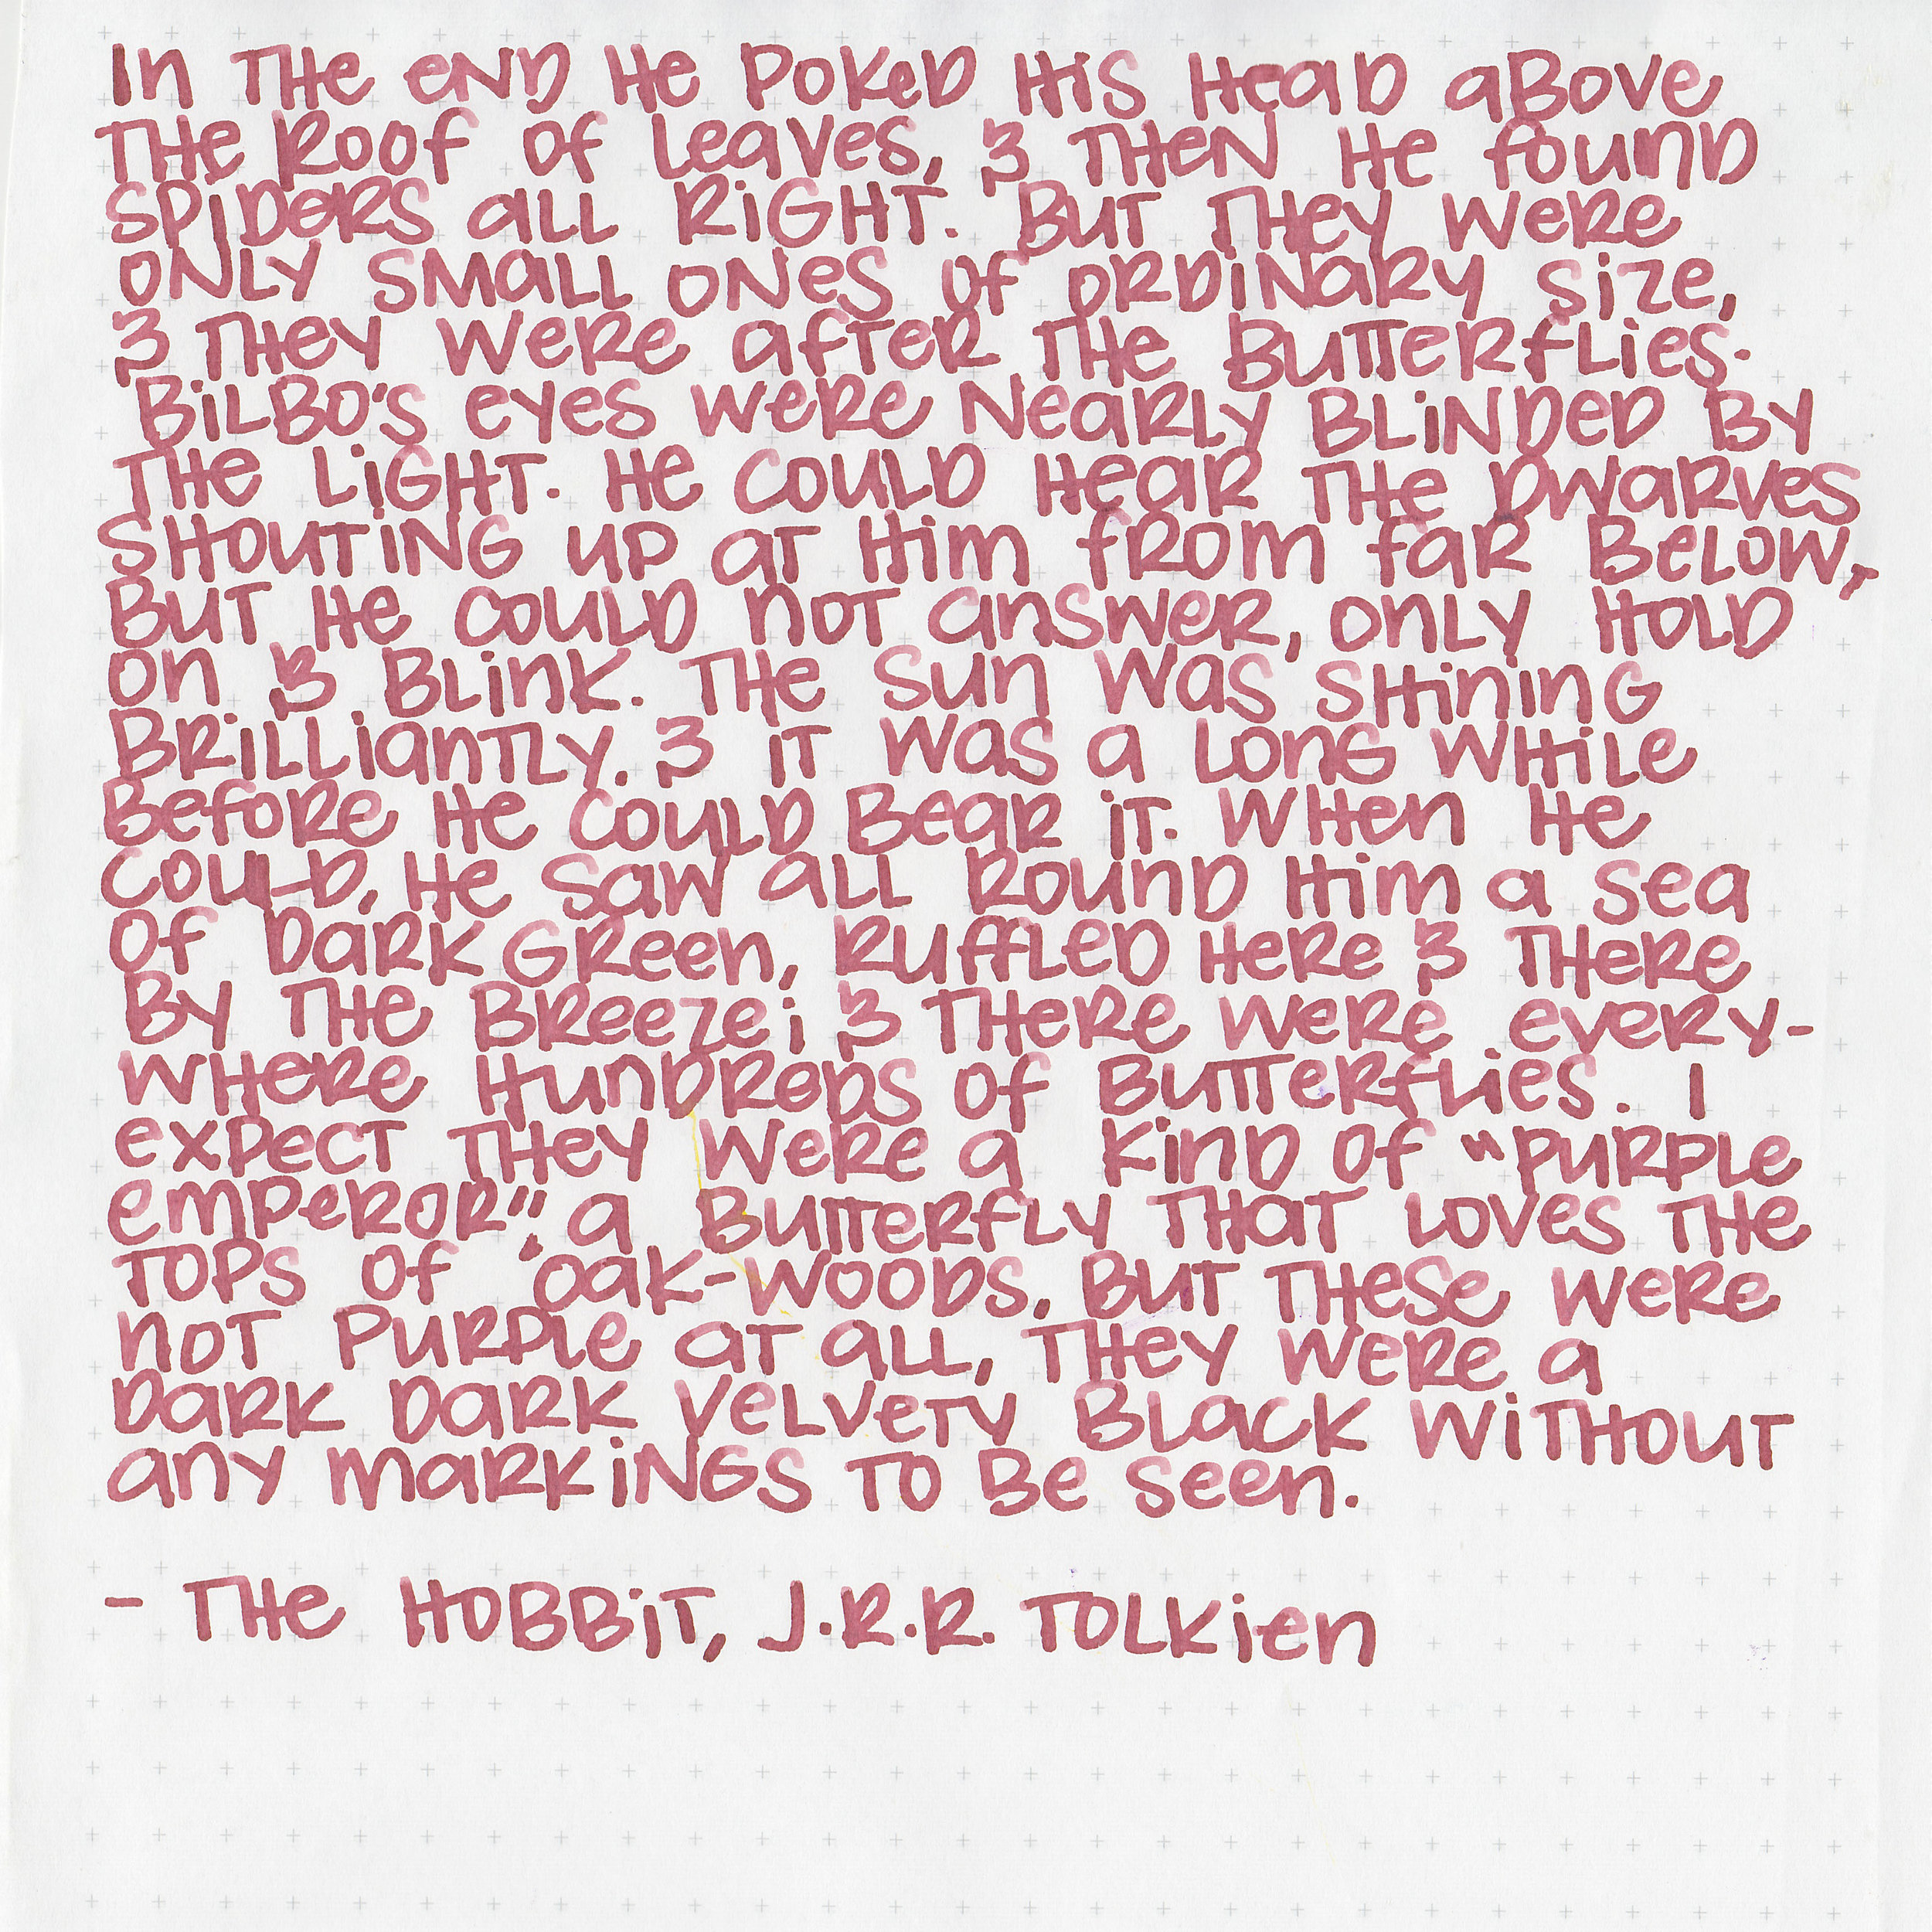 In the end he poked his head above
the roof of leaves, & then he found
spiders all right. But they were
only small ones of ordinary size,
& they were after the butterflies.
Bilbo's eyes were nearly blinded by
the light. He could hear the dwarves
shouting up at him from far below,
but he could not answer, only hold
on & blink. The sun was shining
brilliantly, & it was a long while
before he could bear it. When he
could, he saw all round him a sea
of dark green, ruffled here & there
by the breeze; & there were every-
where hundreds of butterflies. I
expect they were a kind of "purple
emperor", a butterfly that loves the
tops of oak-woods, but these were
not purple at all, they were a
dark dark velvety black without
any markings to be seen.
- The Hobbit, J.R.R. Tolkien